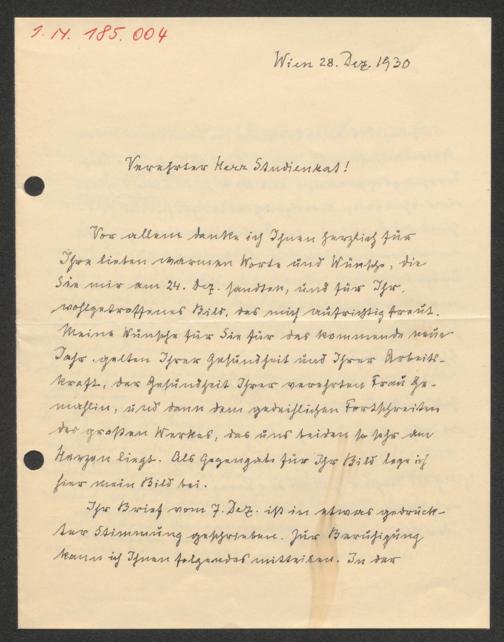 I. N. 185.004
Wien 28. Dez. 1930
Verehrter Herr Studienrat!
Vor allem danke ich Ihnen herzlich für
Ihre lieben warmen Worte und Wünsche, die
Sie mir am 24. Dez. sandten, und für Ihr
wohlgetroffenes Bild, das mich aufrichtig freut.
Meine Wünsche für Sie für das kommende neue
Jahr gelten Ihrer Gesundheit und Ihrer Arbeits-
kraft, der Gesundheit Ihrer verehrten Frau Ge-
mahlin, und dann dem gedeihlichen Fortschreiten
des großen Werkes, das uns beiden so sehr am
Herzen liegt. Als Gegengabe für Ihr Bild lege ich
hier mein Bild bei.
Ihr Brief vom 7. Dez. ist in etwas gedrück-
ter Stimmung geschrieben. Zur Beruhigung
kann ich Ihnen folgendes mitteilen. In der